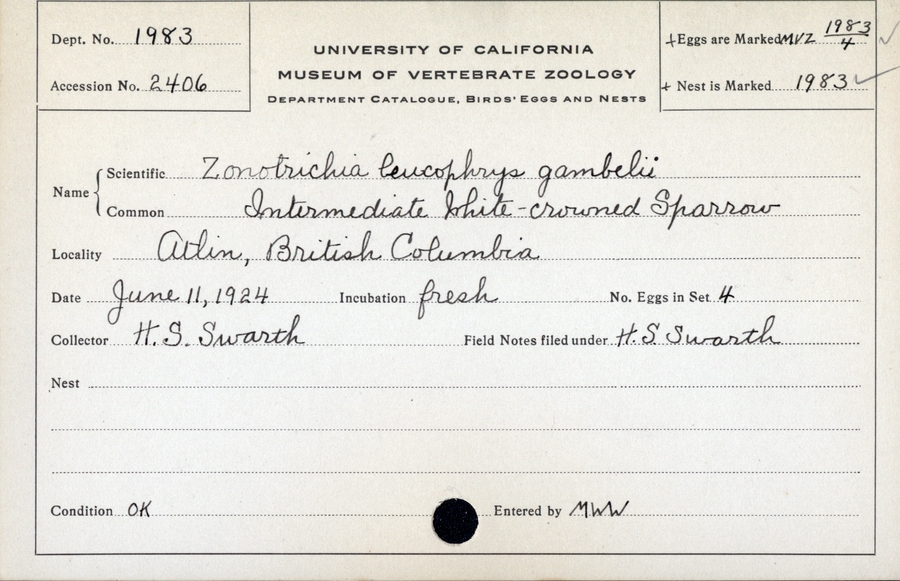 Dept. No. 1983
Accession No. 2406
UNIVERSITY OF CALIFORNIA
MUSEUM OF VERTEBRATE ZOOLOGY
DEPARTMENT CATALOGUE, BIRDS' EGGS AND NESTS
+ Eggs are Marked MVZ 1983/4 ✓
+ Nest is Marked 1983 ✓
Name { Scientific Zonotrichia leucophrys gambelii
Common Intermediate White-crowned Sparrow
Locality Atlin, British Columbia
Date June 11, 1924 Incubation fresh No. Eggs in Set 4
Collector H. S. Swarth Field Notes filed under H. S. Swarth
Nest
Condition OK Entered by MWW